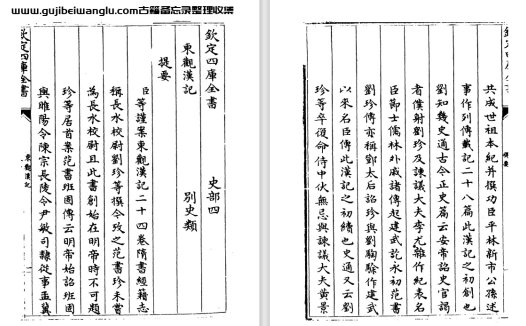 www.gujibeiwanglu.com古籍备忘录整理收集
欽定四庫全書 史部四
東觀漢記 別史類
提要
臣等謹案東觀漢記二十四卷隋書經籍志
稱長水校尉劉珍等撰今攷之范書珍未嘗
為長水校尉且此書創始在明帝時不可題
珍等居首案范書班固傳云明帝始詔班固
與睢陽令陳宗長陵令尹敏司隷從事孟冀
欽定四庫全書
東觀漢記
欽定四庫全書
共成世祖本紀并撰功臣平林新市公孫述
事作列傳載記二十八篇此漢記之初創也
劉知幾史通古今正史篇云安帝詔史官謁
者僕射劉珍及諫議大夫李尤雜作紀表名
臣節士儒林外戚諸傳起建武訖永初范書
劉珍傳亦稱鄧太后詔珍與劉騊駼作建武
以來名臣傳此漢記之初續也史通又云劉
珍等卒復命侍中伏無忌與諫議大夫黃景